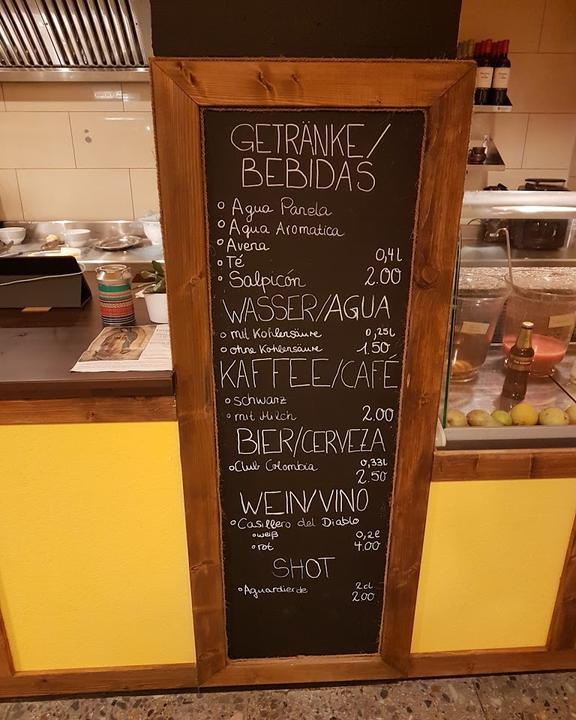 GETRÄNKE/
BEBIDAS
Agua Panela
Agua Aromatica
Avena
Té 0,4l
Salpicón 2.00
WASSER/AGUA
mit Kohlensäure 0,25l
ohne Kohlensäure 1.50
KAFFEE/CAFÉ
schwarz
mit Milch 2.00
BIER/CERVEZA
Club Colombia 0,33l
2.50
WEIN/VINO
Casillero del Diablo
weiß 0,2l
rot 4.00
SHOT
Aguardiente 2cl
2.00